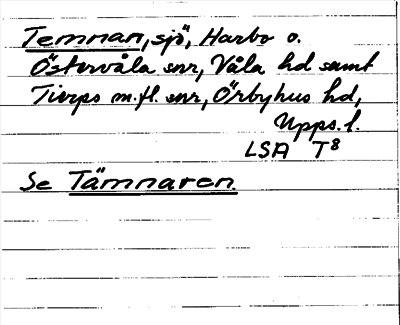 Temnan, sjö, Harbo o.
Östervåla snr, Våla hd samt
Tierps m.fl. snr, Örbyhus hd,
Upps. l.
LSA T8
Se Tämnaren